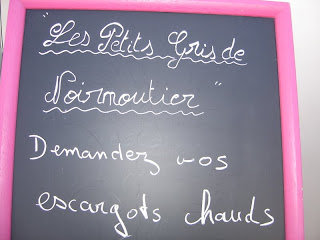 "Les Petits Gris de
Noirmoutier"
Demandez vos
escargots chauds